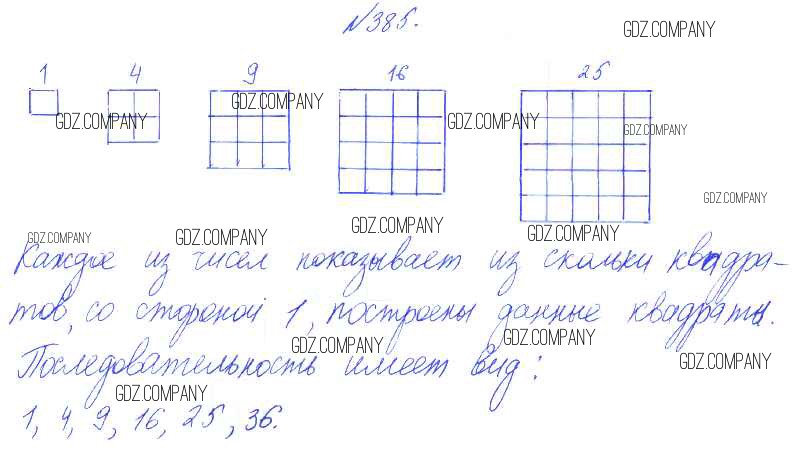 №385.
GDZ.COMPANY
1 4 9 16 25
GDZ.COMPANY
GDZ.COMPANY GDZ.COMPANY GDZ.COMPANY
GDZ.COMPANY
GDZ.COMPANY GDZ.COMPANY GDZ.COMPANY GDZ.COMPANY
Каждое из чисел показывает из скольки квадра-
тов, со стороной 1, построены данные квадраты.
GDZ.COMPANY GDZ.COMPANY
Последовательность имеет вид:
GDZ.COMPANY GDZ.COMPANY
1, 4, 9, 16, 25, 36.